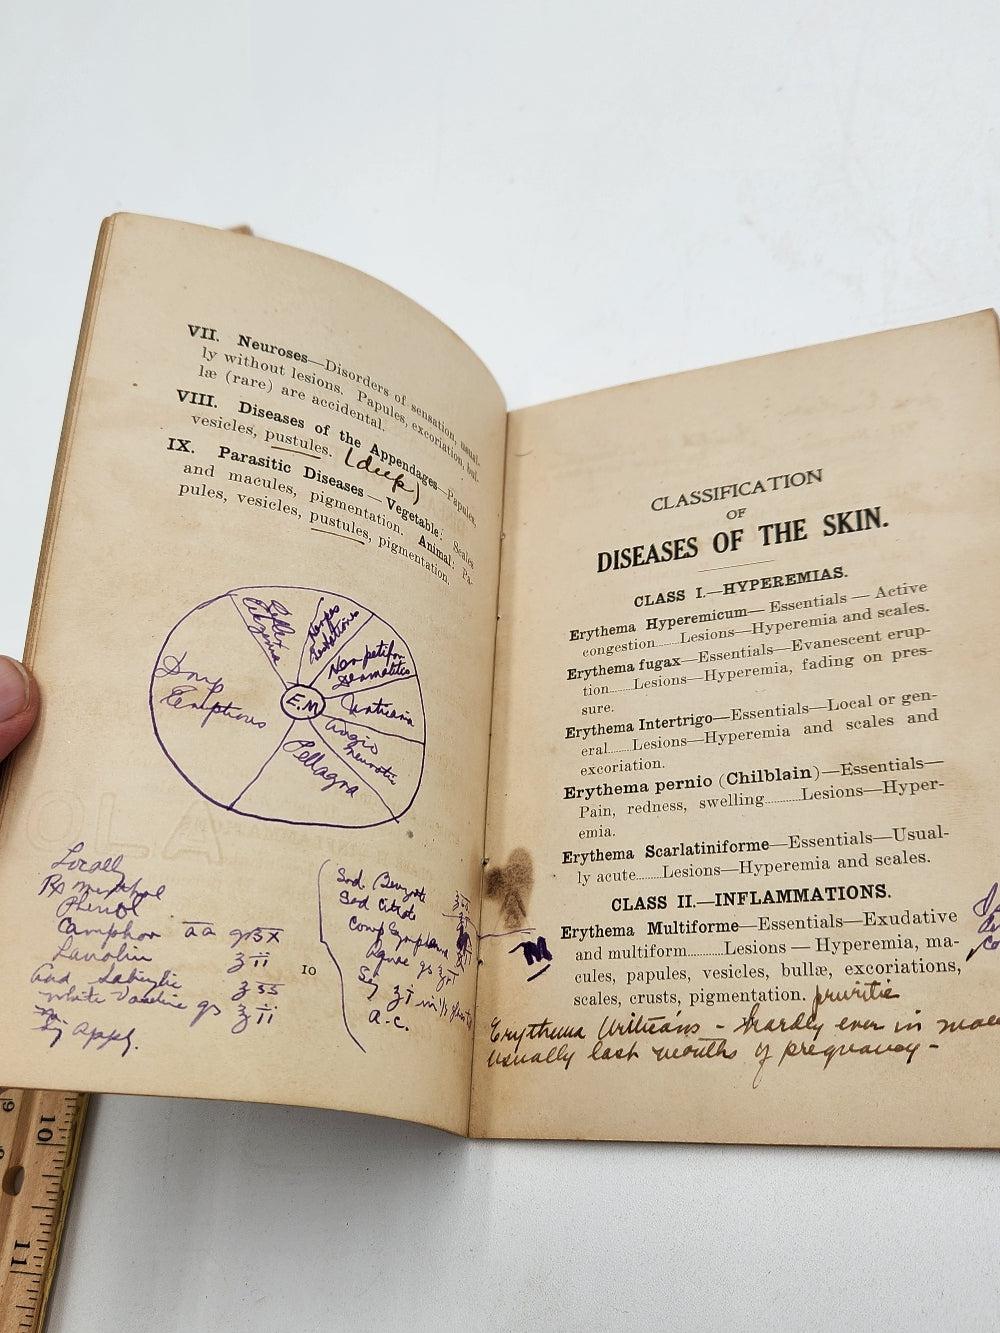 VII. Neuroses—Disorders of sensation, usual-
ly without lesions. Papules, excoriation, bul-
læ (rare) are accidental.
VIII. Diseases of the Appendages—Papules,
vesicles, pustules. (deep)
IX. Parasitic Diseases—Vegetable: Scales
and macules, pigmentation. Animal: Pa-
pules, vesicles, pustules, pigmentation.
Herpes
Dermatitis
Urticaria
E.M
Angio
neurotic
Drug
Eruptions
Pellagra
Locally
Rx Menthol
Phenol
Camphor āā grsx
Lanolin ʒii
Acid Salicylic ʒss
White Vaseline qs ʒii
M.
Sig Appy.
Sod Benzoate
Sod Citrate
Comp Syr
Aquae qs
Sig ʒi in
a.c.
10
CLASSIFICATION
OF
DISEASES OF THE SKIN.
CLASS I.—HYPEREMIAS.
Erythema Hyperemicum—Essentials—Active
congestion......Lesions—Hyperemia and scales.
Erythema fugax—Essentials—Evanescent erup-
tion......Lesions—Hyperemia, fading on pres-
sure.
Erythema Intertrigo—Essentials—Local or gen-
eral......Lesions—Hyperemia and scales and
excoriation.
Erythema pernio (Chilblain)—Essentials—
Pain, redness, swelling.........Lesions—Hyper-
emia.
Erythema Scarlatiniforme—Essentials—Usual-
ly acute......Lesions—Hyperemia and scales.
CLASS II.—INFLAMMATIONS.
Erythema Multiforme—Essentials—Exudative
M and multiform.........Lesions—Hyperemia, ma-
cules, papules, vesicles, bullæ, excoriations,
scales, crusts, pigmentation. pruritis
Erythema - Hardly ever in
usually last months of pregnancy -
9
10
11